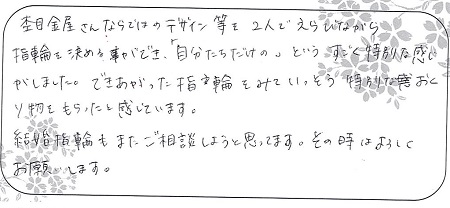 杢目金屋さんならではのデザイン等を2人でえらびながら
指輪を決める事ができ、「自分たちだけの」という すごく特別な感じ
がしました。できあがった指輪をみていっそう特別なおく
り物をもらったと感じています。
結婚指輪もまたご相談しようと思ってます。その時はよろしく
お願いします。